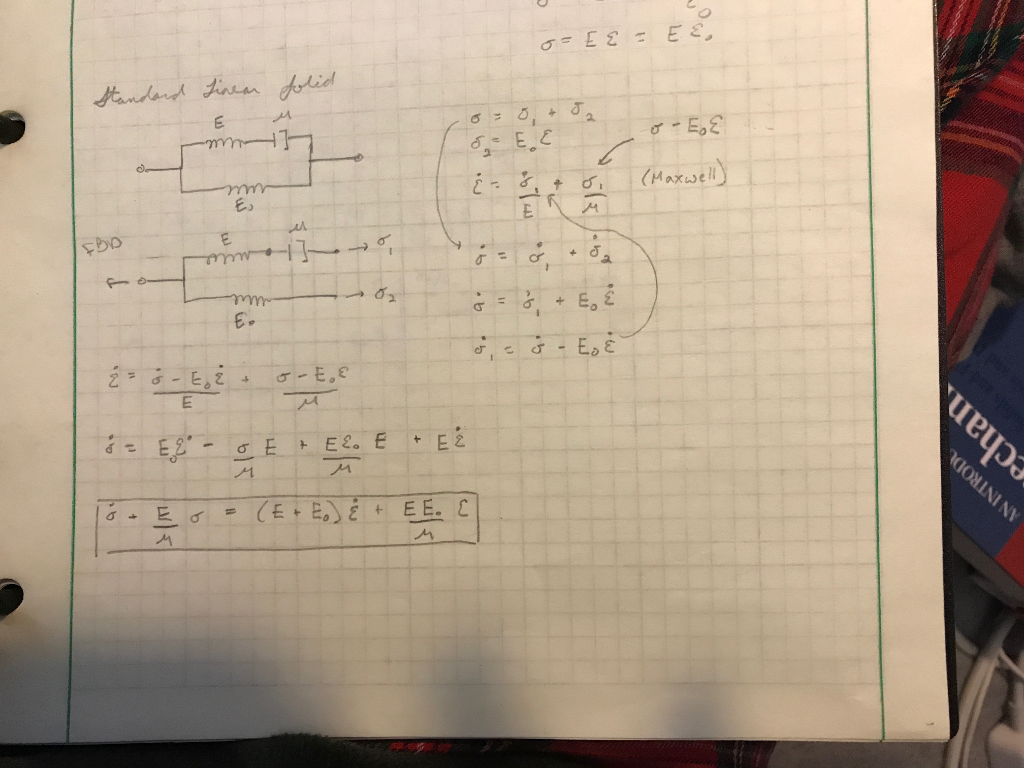 σ = E ε = E ε̇₀
Standard Linear Solid
E
μ
E₀
σ = σ₁ + σ₂
σ₂ = E₀ε
σ - E₀ε
ε̇ = σ̇₁/E + σ₁/μ (Maxwell)
FBD
E
μ
→ σ₁
σ
→ σ₂
E₀
σ̇ = σ̇₁ + σ̇₂
σ̇ = σ̇₁ + E₀ε̇
σ̇₁ = σ̇ - E₀ε̇
ε̇ = (σ̇ - E₀ε̇)/E + (σ - E₀ε)/μ
σ̇ = E₀ε̇ - (σ/μ) E + (Eε₀/μ) E + Eε̇
σ̇ + (E/μ) σ = (E + E₀)ε̇ + (EE₀/μ) ε
AN INTRODU
echan